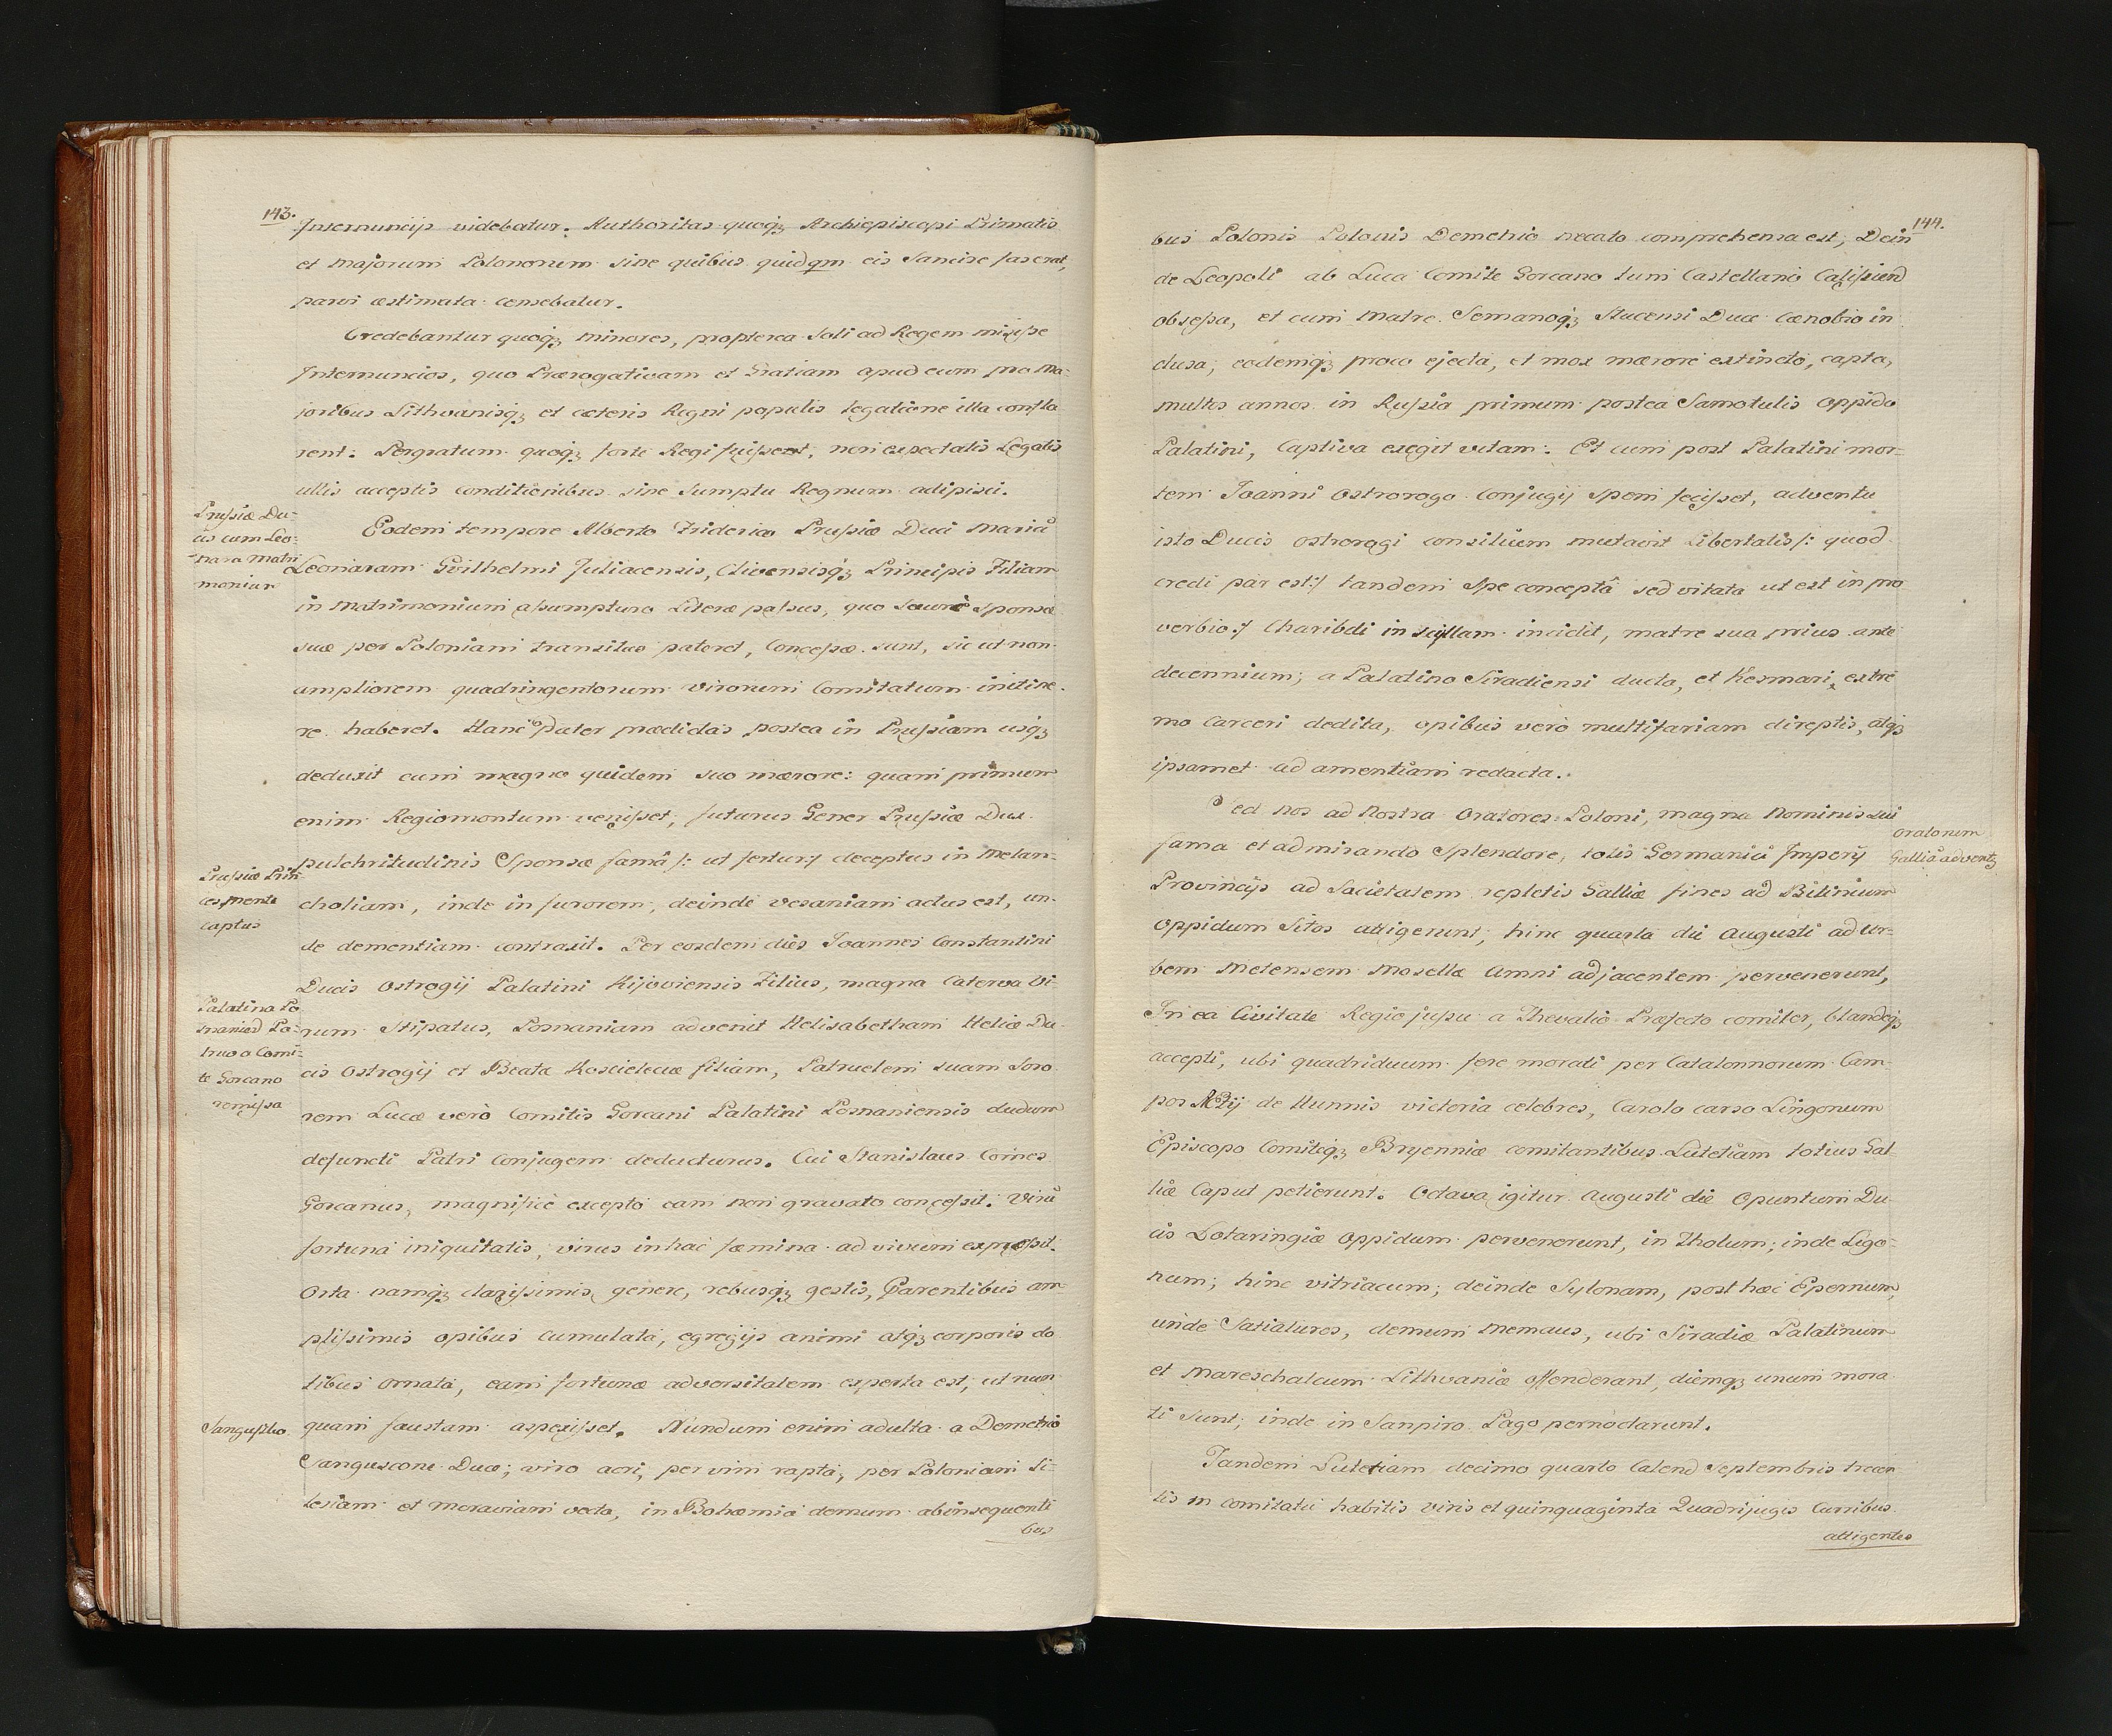 143.
Internuncijs videbatur. Authoritas quoqz Archiepiscopi Primatis
et Majorum Polonorum sine quibus quidqm eis Sancire fas erat,
parvi æstimata censebatur.
Credebantur quoqz minores, propterea Soli ad Regem misisse
Internuncios, quo Prærogativam et Gratiam apud eum pro Ma-
joribus Lithvanisqz et cæteris Regni populis legatione illa confla
rent: Pergratum quoqz forte Regi fuisset, non expectatis Legatis
ullis acceptis conditionibus sine Sumptu Regnum adipisci.
Prussiæ Du-
cis cum Leo-
nara Matri
monium
Eodem tempore Alberto Friderico Prussiæ Duci Maria
Leonaram Gvilhelmi Juliacensis, Clivensisqz Principis Filiam
in Matrimonium assumpturo Literæ passus, quo Securè Sponsæ
suæ per Poloniam transitus pateret, Concessæ sunt, sic ut non
ampliorem quadringentorum virorum Comitatum in itine-
re haberet. Hanc Pater prædictas postea in Prussiam usqz
deduxit cum magno quidem suo mærore: quam primum
enim Regiomontum venisset, futurus Gener Prussiæ Dux
Prussiæ Prin
ceps mente
captus
pulchritudinis Sponsæ famâ /: ut fertur :/ deceptus in Melan-
choliam, inde in furorem, deinde vesaniam actus est, un-
de dementiam contraxit. Per eosdem dies Joannes Constantini
Ducis Ostrogij Palatini Kijoviensis Filius, magna Caterva Vi-
Palatina Po
snanien Pa-
truo a Comi-
te Gorcano
remissa
rum Stipatus, Posnaniam advenit Helisabetham Heliæ Du
cis Ostrogij et Beatæ Koscieleciæ filiam, Patruelem suam Soro
rem Lucæ verò Comitis Gorcani Palatini Posnaniensis dudum
defuncti Patri Conjugem deducturus. Cui Stanislaus Comes
Gorcanus, magnificè excepto eam non gravato concessit. Virû
fortuna iniquitatis, virus in hac fæmina ad vivum expressit.
Orta namqz clarissimis genere, rebusqz gestis, Parentibus am-
plissimis opibus cumulata, egregijs animi atqz corporis do
tibus ornata, eam fortunæ adversitatem experta est, ut nun
quam faustam aspexisset. Nundum enim adulta a Demetrio
Sangussko
Sanguscone Duce; viro acri, per vim rapta, per Poloniam Si-
lesiam et Moraviam vecta, in Bohæmia demum ab insequenti
bus
144.
bus Polonis Polonis Demetrio necato comprehensa est; Dein
de Leopoli ab Luca Comite Gorcano tum Castellano Calissien
obsessa, et cum Matre Semanoqz Slucensi Duce cænobio in
clusa, eodemqz proco ejecta, et mox mærore extincto, capta,
multos annos in Russia primum postea Samotulis oppido
Palatini, Captiva exegit vitam: Et cum post Palatini mor-
tem Joanni Ostrorogo Conjugij spem fecisset, adventu
isto Ducis ostrorogi consilium mutavit Libertatis /: quod
credi par est :/ tandem Spe conceptâ sed vitata ut est in pro
verbio :/ Charibdi in scyllam incidit, matre sua prius ante
decennium; a Palatino Siradiensi ducta, et Kesmari, extre
mo Carceri dedita, opibus verò multifariam direptis, atqz
ipsamet ad amentiam redacta.
Sed nos ad Nostra Oratores Poloni, magna Nominis sui
Oratorum
Galliâ adventz
fama et admirando Splendore, totis Germanici Imperij
Provincijs ad Societatem repletis Galliæ fines ad Bitinium
Oppidum Sitos attigerunt, hinc quarta die Augusti ad ur-
bem Metensem Mosellæ Amni adjacentem pervenerunt,
In ea Civitate Regio jussu a Thevalio Præfecto comiter, blandeqz
accepti, ubi quadriduum fere morati per Catalonnorum Cam-
pos Aetij de Hunnis victoria celebres, Carolo carso Lingonum
Episcopo Comiteqz Bryenniæ comitantibus Lutetiam totius Gal-
liæ Caput petierunt. Octava igitur Augusti die Opuntum Du-
cis Lotaringiæ Oppidum pervenerunt, in Tholum; inde Ligo-
num; hinc vitriacum; deinde Sylonam, post hæc Epernum,
unde Satialures, demum Memaus, ubi Siradiæ Palatinum
et Mareschalcum Lithvaniæ offenderant, diemqz unum mora
ti Sunt; inde in Sanpiro Pago pernoctarunt.
Tandem Lutetiam decimo quarto Calend Septembris trecen
tis in comitatu habitis viris et quinquaginta Quadrijugis Curribus
attigentes